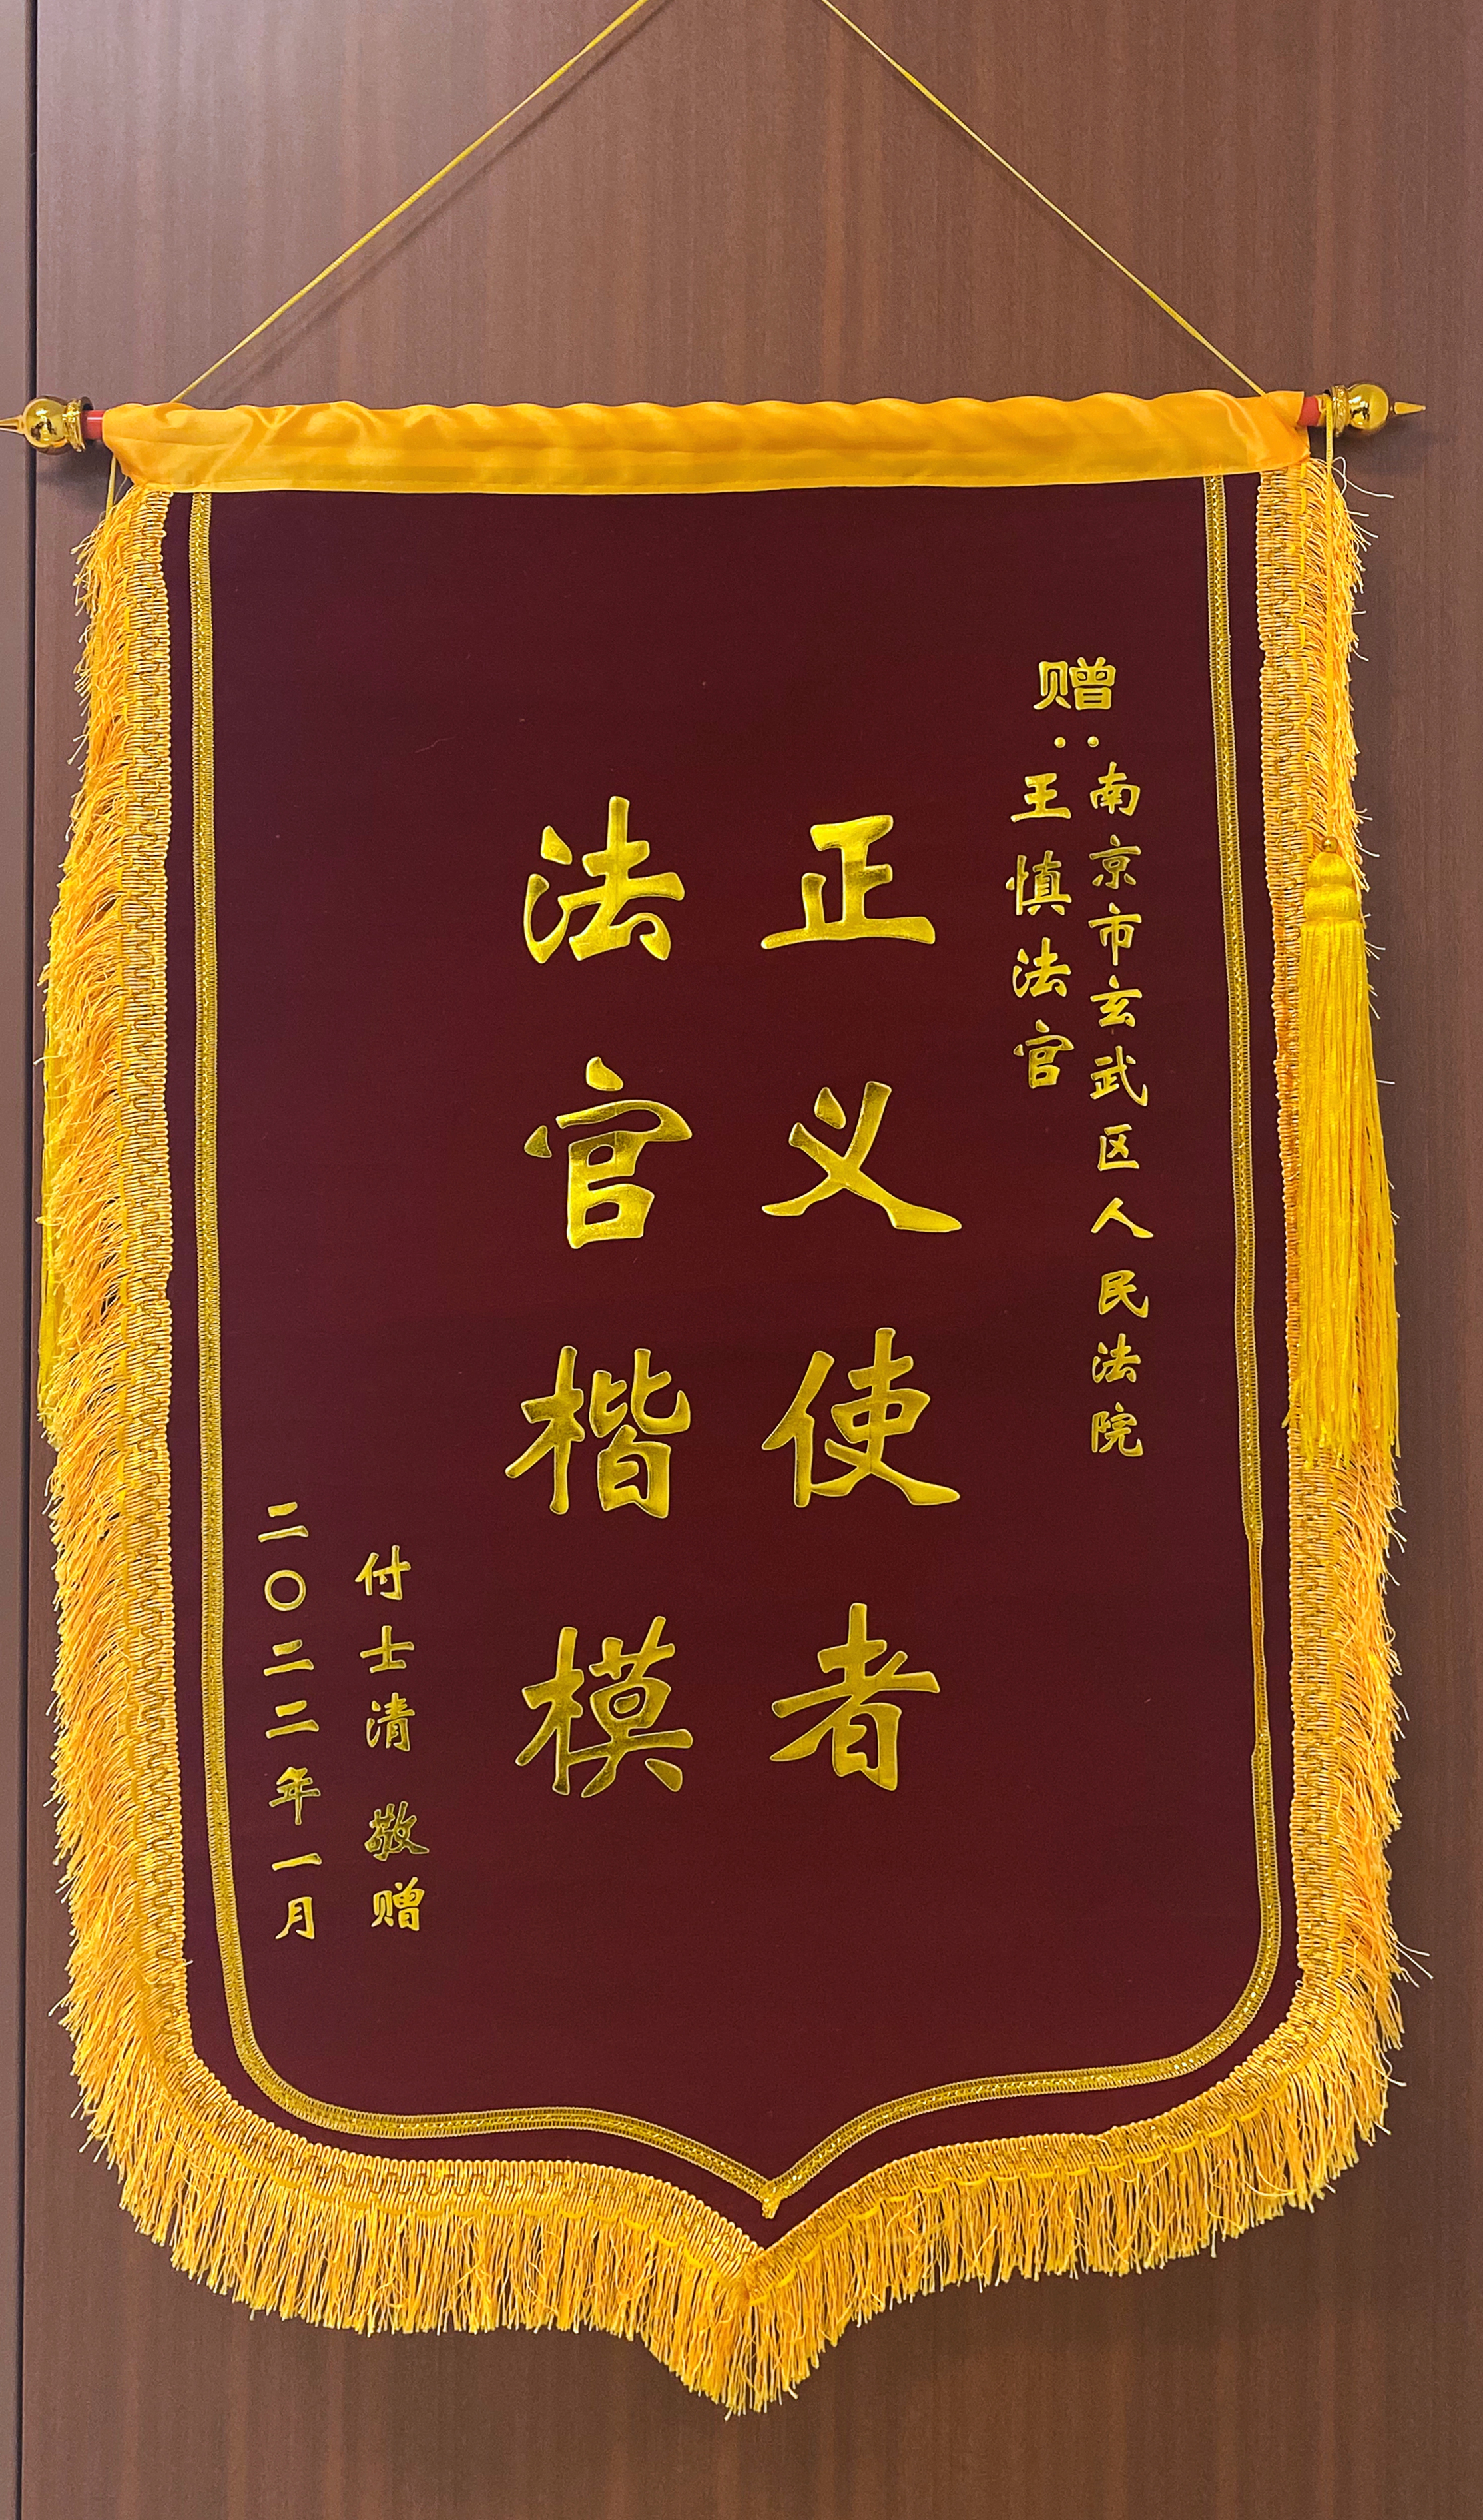 赠：
南京市玄武区人民法院
王慎法官
正义使者
法官楷模
付士清 敬赠
二〇二二年一月